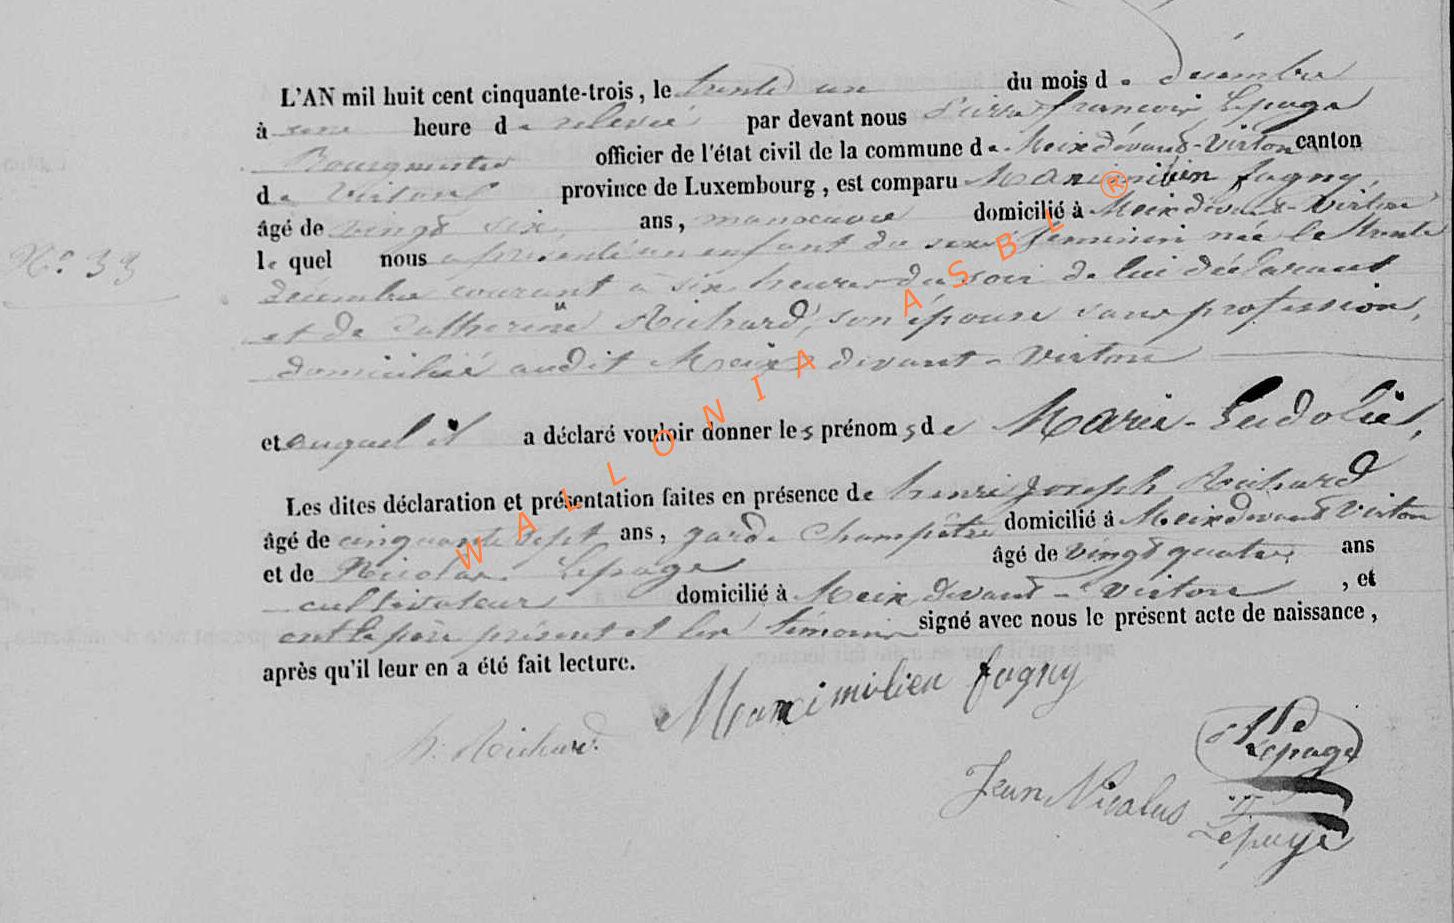 L'AN mil huit cent cinquante-trois, le trente un du mois de décembre
à une heure de relevée par devant nous Pierre françois Lepage
Bourgmestre officier de l'état civil de la commune de Meix devant-Virton canton
de Virton province de Luxembourg, est comparu Maximilien fagny,
âgé de vingt six ans, manoeuvre domicilié à Meix devant-Virton
N° 33
lequel nous a présenté un enfant du sexe feminin née le trente
décembre courant à six heures du soir de lui déclarant
et de Catherine Richard, son épouse sans profession,
domiciliée audit Meix devant-Virton
et auquel il a déclaré vouloir donner les prénoms de Marie-
Les dites déclaration et présentation faites en présence de henri joseph Richard
âgé de cinquante sept ans, garde champêtre domicilié à Meix devant Virton
et de Nicolas Lepage âgé de vingt quatre ans
cultivateur domicilié à Meix devant-Virton, et
ont le père présent et les témoins signé avec nous le présent acte de naissance,
après qu'il leur en a été fait lecture.
Maximilien fagny
h. Richard
Lepage
Jean Nicolas
Lepage
WALLONIA ASBL ®